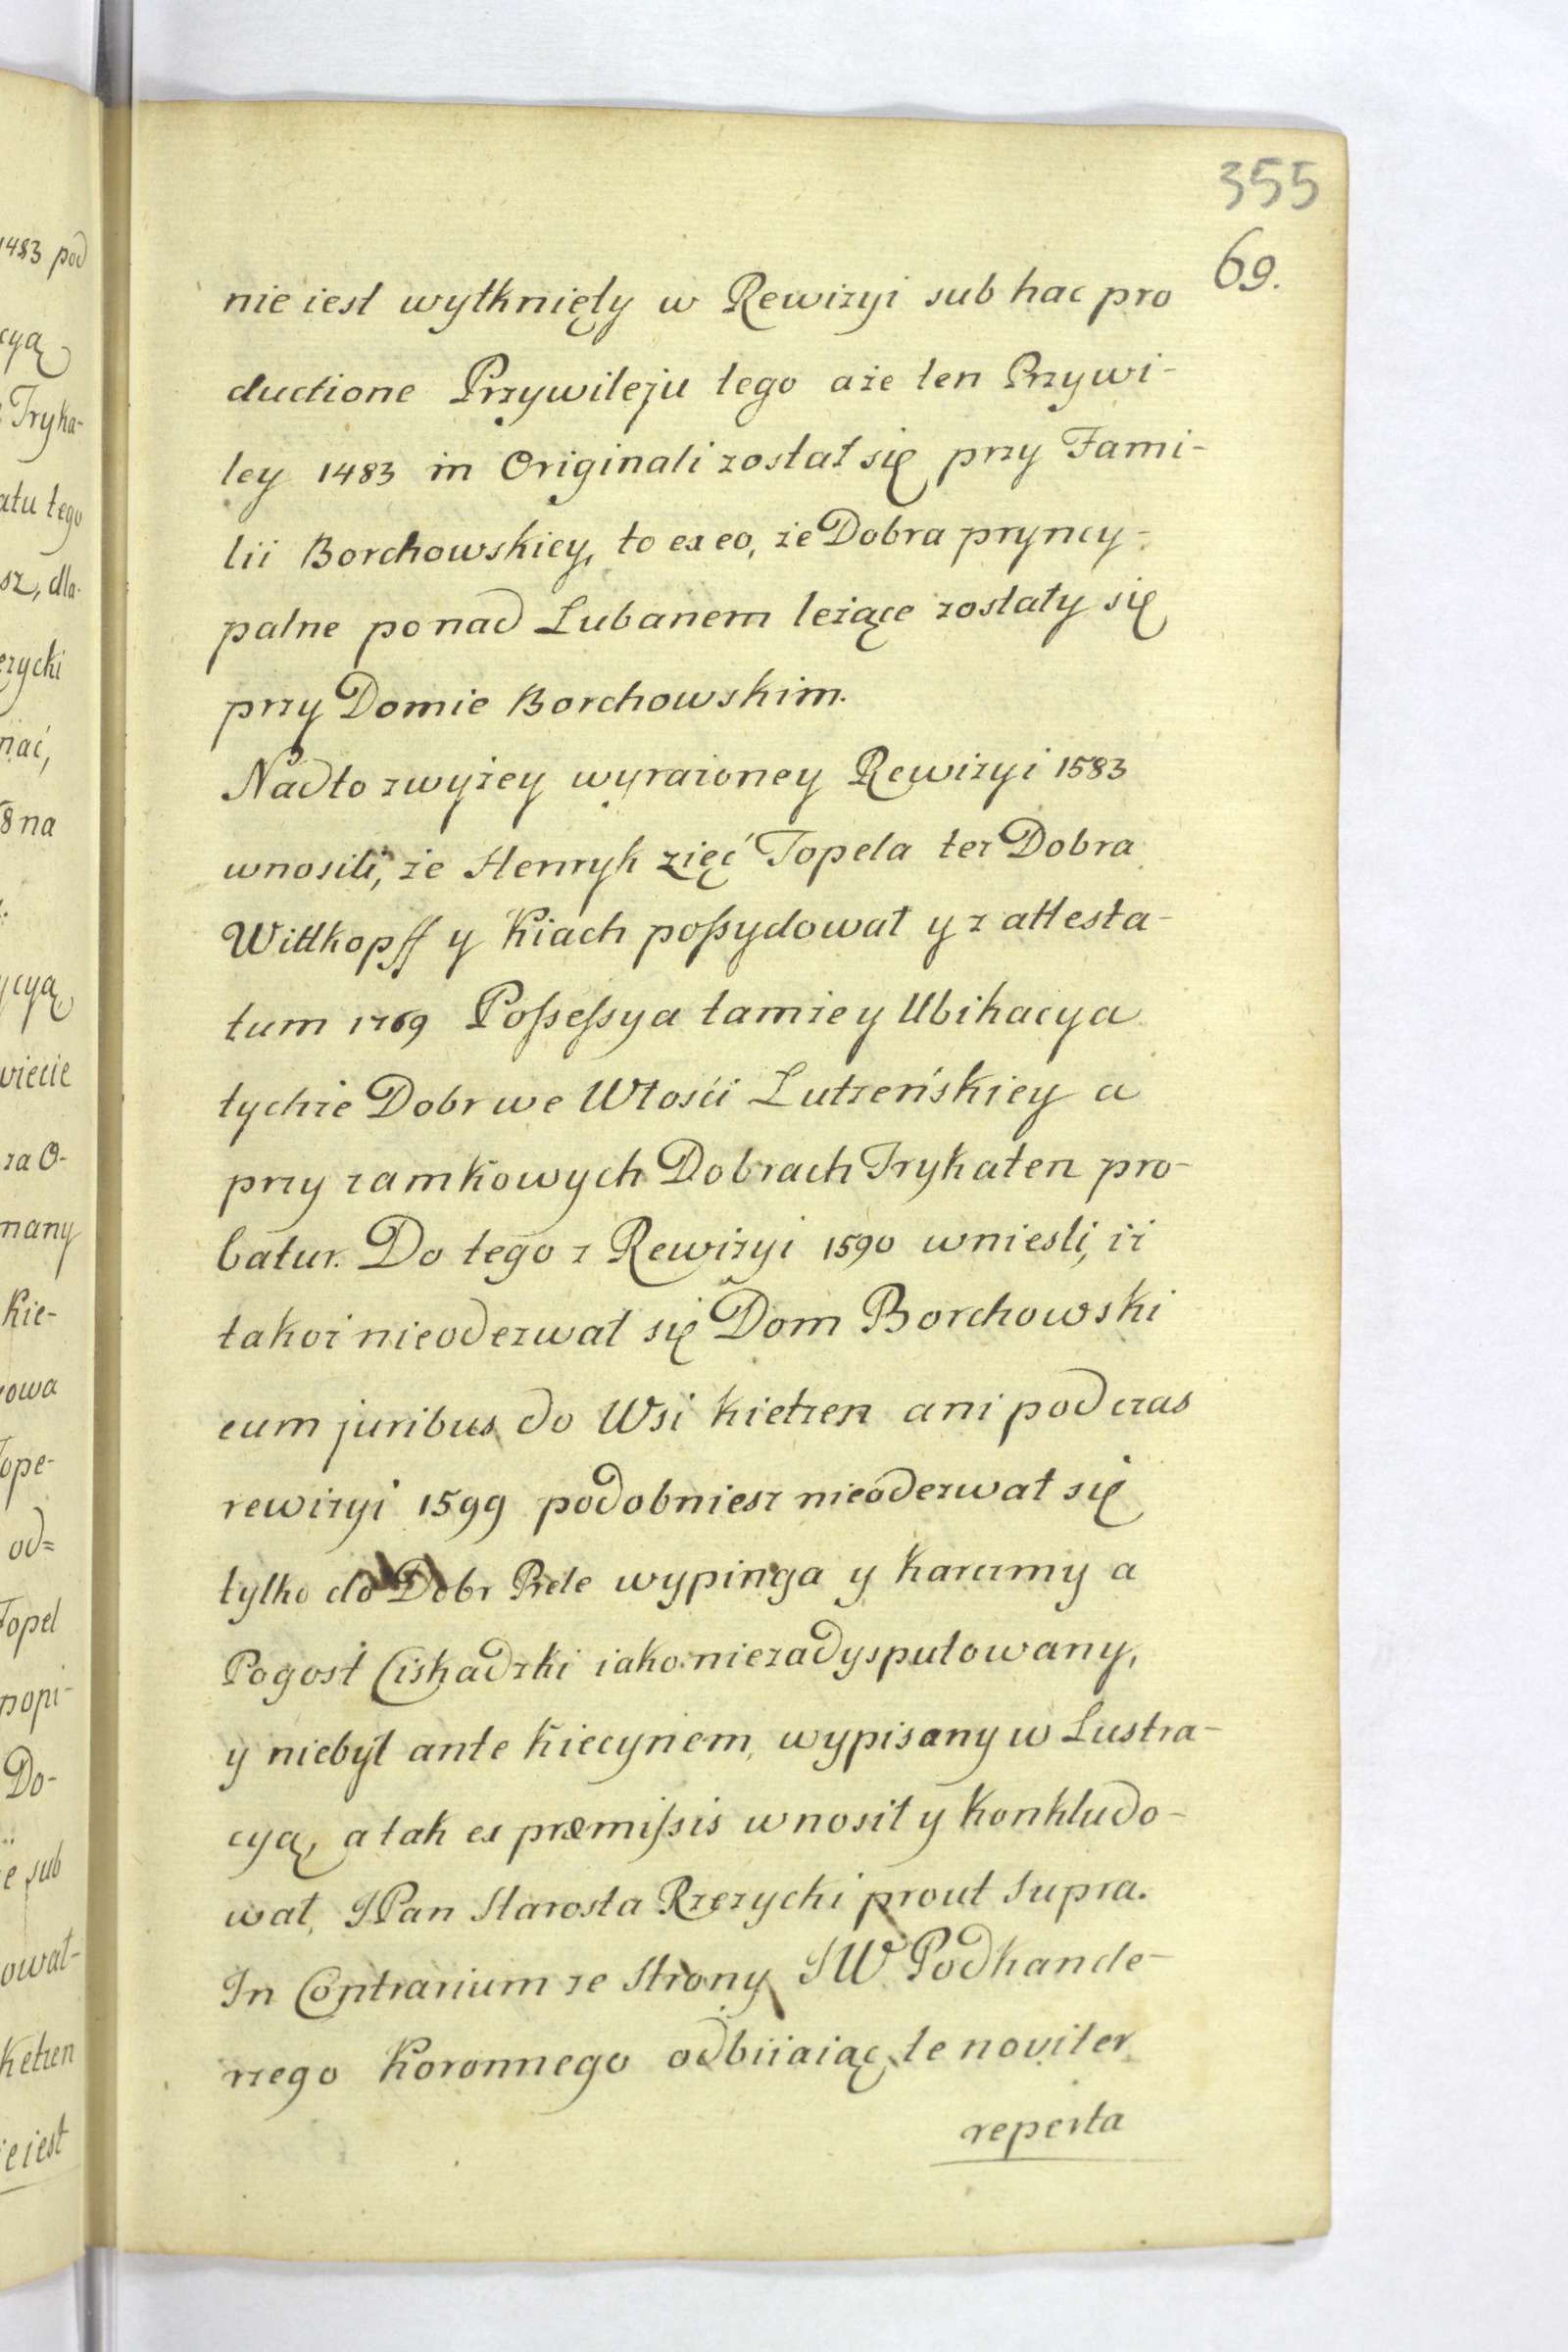 355
69.
nie iest wytknięty w Rewizyi sub hac pro
ductione Przywileju tego aże ten Przywi-
ley 1483 in Originali został się przy Fami-
lii Borchowskiey, to ex eo, że Dobra pryncy-
palne ponad Lubanem leżące zostały się
przy Domie Borchowskim.
Nadto zwyżey wyrażoney Rewizyi 1583
wnosili, że Henryk zięć Topela też Dobra
Wittkopff y Kiach poßydował y z attesta-
tum 1769 Poßeßya tamże y Ubikacya
tychże Dobr we Włości Lutzeńskiey a
przy zamkowych Dobrach Trykaten pro-
batur. Do tego z Rewizyi 1590 wniesli, iż
takoż nieoderwał się Dom Borchowski
cum juribus do Wsi Kietzen ani podczas
rewizyi 1599 podobniesz nieoderwał się
tylko do Dobr Prele wypinga y Karczmy a
Pogost Ciskadzki iako niezadysputowany,
y niebył ante Kiecynem, wypisany w Lustra-
cyą, a tak ex præmißis wnosił y Konkludo-
wał, JPan Starosta Rzeżycki prout Supra.
In Contrarium ze Strony JW Podkancle-
rzego Koronnego odbiiaiąc te noviter
reperta
1483 pod
cyą
Tryka-
atu tego
sz, dla-
życki
nać,
8 na
ycyą
wiecie
za O-
many
Kie-
owa
Tope-
od=
Topel
popi-
Do-
e sub
ował-
Ketzen
ie iest